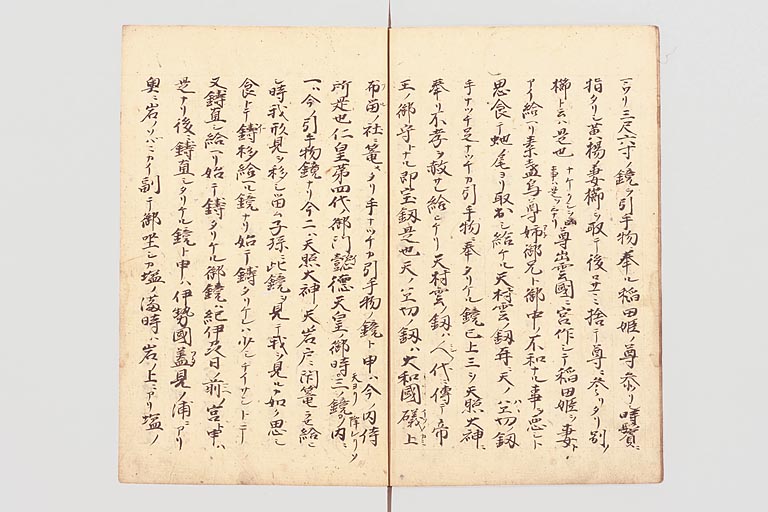 ニワリ三尺六寸ノ鏡ヲ引手物ニ奉ル稲田姫ノ尊ニ参リシ時鬢ニ
指タリシ黄楊妻櫛ヲ取テ後ロサマニ捨テ尊ニ参リタリ別ノ
櫛ト云ハ是也 尊出雲國ニ宮作シテ稲田姫ヲ妻ト
アイ給ヘリ素盞烏ノ尊姉御兄ト御中ノ不和ナル事ヲ悪シト
思食テ虵尾ヨリ取出シ給ケル天村雲ノ釼并天ノハヽ切ノ釼
手ナツチ足ナツチカ引手物ニ奉タリケル鏡已上三ヲ天照大神ニ
奉リ不孝ヲ赦サレ給ヒケリ天村雲ノ釼ハ人代ニ傳テ帝
王ノ御守トナル即宝釼是也天ノハヽ切ノ釼ハ大和國礒上
布留ノ社ニ篭タリ手ナツチカ引手物ノ鏡ト申ハ今ノ内侍
所是也仁皇第四代ノ御門懿德天皇ノ御時三ノ鏡ノ内ニ
天ヨリ降レリソノ
一ハ今ノ引手物鏡ナリ今二ハ天照大神ノ天岩戸ニ閇篭ラセ給シ
時我形見ヲ移シ留ム子孫ニ此鏡ヲ見テ我ヲ見ルカ如ク思シ
食トテ鋳移給ヘル鏡ナリ始テ鋳タリケルハ少シチイサシトテ
又鋳直シ給ヘリ始テ鋳タリケル御鏡ハ紀伊國日前宮ト申ハ
是ナリ後ニ鋳直シタリケル鏡ト申ハ伊勢國蓋見ノ浦ニアリ
奥ニ岩ノソバニカイ副テ御坐シカ塩ノ満時ハ岩ノ上ニアリ塩ノ